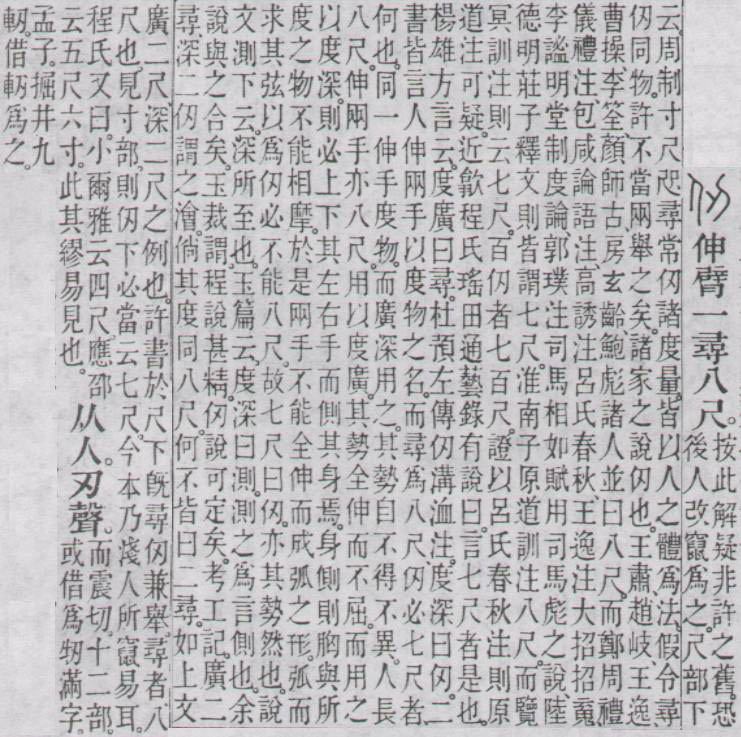 仞 伸臂一尋八尺。
按此解疑非許之舊。恐
後人改竄爲之。尺部下
云。周制寸尺咫尋常仞諸度量。皆以人之體爲法。假令尋
仞同物。許不當兩舉之矣。諸家之說仞也。王肅、趙岐、王逸、
曹操、李筌、顏師古、房玄齡、鮑彪諸人並曰八尺。而鄭周禮
儀禮注、包咸論語注、高誘注呂氏春秋、王逸注大招招䰟、
李謐明堂制度論、郭璞注司馬相如賦用司馬彪之說、陸
德明莊子釋文則皆謂七尺。淮南子原道訓注八尺。而覽
冥訓注則云七尺。百仞者七百尺。證以呂氏春秋注則原
道注可疑。近歙程氏瑤田通藝錄有說曰。言七尺者是也。
楊雄方言云。度廣曰尋。杜預左傳仞溝洫注。度深曰仞。二
書皆言人伸兩手以度物之名。而尋爲八尺。仞必七尺者
何也。同一伸手度物。而廣深用之。其勢自不得不異。人長
八尺。伸兩手亦八尺。用以度廣。其勢全伸而不屈。而用之
以度深。則必上下其左右手而側其身焉。身側則胸與所
度之物不能相摩。於是兩手不能全伸而成弧之形。弧而
求其弦以爲仞必不能八尺。故七尺曰仞。亦其勢然也。說
文測下云。深所至也。玉篇云。度深曰測。測之爲言側也。余
說與之合矣。玉裁謂程說甚精。仞說可定矣。考工記。廣二
尋、深二仞謂之澮。倘其度同八尺。何不皆曰二尋。如上文
廣二尺、深二尺之例也。許書於尺下旣尋仞兼舉。尋者、八
尺也。見寸部。則仞下必當云七尺。今本乃淺人所竄易耳。
程氏又曰。小爾雅云四尺。應邵
云五尺六寸。此其繆易見也。
从人。刃聲。
而震切。十二部。
或借爲牣滿字。
孟子。掘井九
軔。借軔爲之。